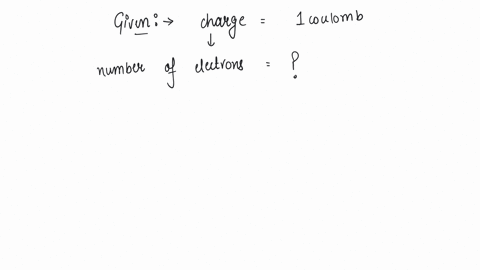 Given:→ charge = 1 coulomb
↓
number of electrons = ?